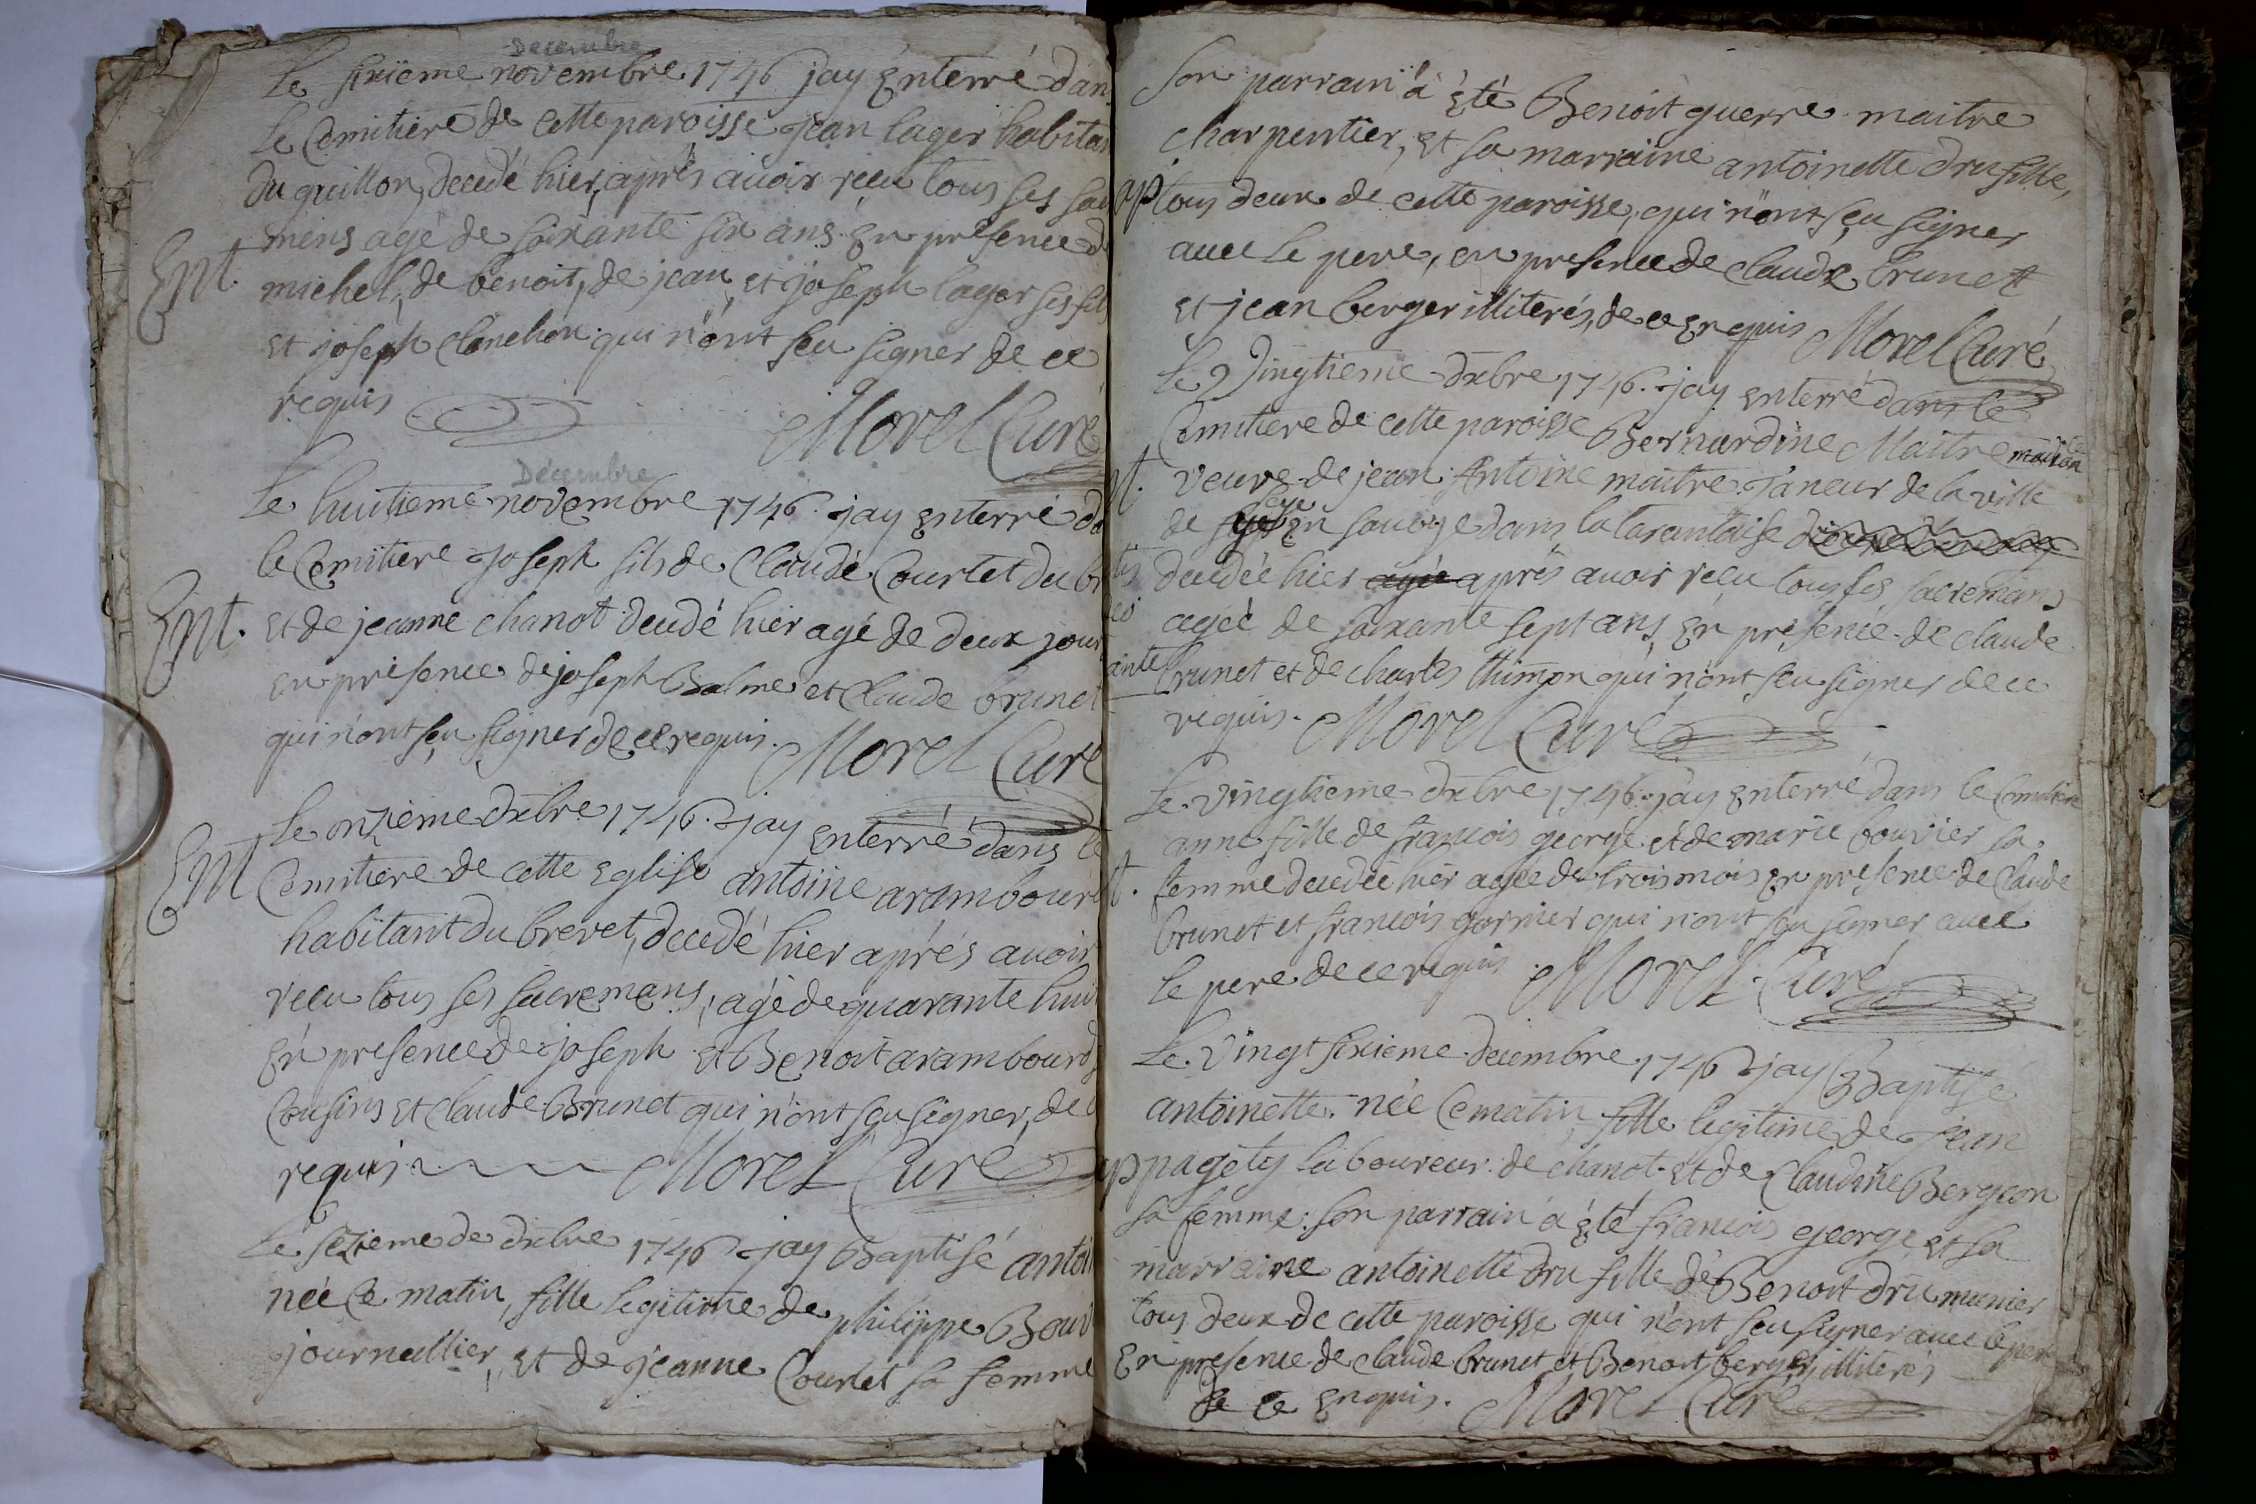 Decembre
Le sixieme novembre 1746 jay Enterré dan
le Cemitiere de cette paroisse jean lager habitan
du guillon, decedé hier, aprés avoir reçu tous ses sac
Ent.
mens agé de soixante six ans. En presence d
michel, de benoit, de jean, et joseph lager ses fils
Et joseph clonchon qui n'ont sçu signer de ce
requis
Morel Curé
Decembre
Le huitieme novembre 1746. jay Enterré da
le Cemitiere joseph fils de Claude Courtet du br
Ent.
Et de jeanne chanot decedé hier agé de deux jour
en presence de joseph Balme et Claude brunet
qui n'ont sçu signer de ce requis.
Morel Curé
Le onzieme dxbre 1746. jay Enterré dans le
Ent
Cemitiere de cette Eglise antoine arambourd
habitant du brevet, decedé hier aprés avoir
reçu tous ses sacremans, agé de quarante huit
En presence de joseph et Benoit arambourd
Cousins Et Claude Brunet qui n'ont sçu signer, de c
requis
Morel Curé
Le sezieme de dxbre 1746 jay Baptisé antoi
née Ce matin, fille legitime de philippe Bouv
journallier, Et de jeanne Courtet sa femme
son parrain à Eté Benoit guerre maitre
charpentier, Et sa marraine antoinette dru fille,
ap
tous deux de cette paroisse, qui n'ont sçu signer
avec le pere, en presence de claude brunett
et jean berger illiterés, de ce Enquis Morel Curé
Le Vingtieme dxbre 1746. jay Enterré dans le
Cemitiere de cette paroisse Bernardine Maitre
t.
veuve de jean Antoine maitre Taneur de la ville
de En savoye dans la tarantaise
decedée hier agée aprés avoir reçu tous ses sacremans
agée de soixante sept ans, En presence de claude
ante
brunet et de charles thimon qui n'ont sçu signer de ce
requis. Morel Curé
Le Vingtieme dxbre 1746. jay Enterré dans le Cemitiere
anne fille de françois george et de marie bouvier sa
t.
femme decedée hier agée de trois mois En presence de Claude
brunet et françois garnier qui n'ont sçu signer avec
le pere de ce requis Morel Curé
Le Vingt sixieme decembre 1746 jay Baptisé
antoinette née Ce matin, fille legitime de jean
ap
pagety laboureur de chanot Et de Claudine Bergeon
sa femme. son parrain à Eté françois george, Et sa
marraine antoinette dru fille de Benoit dru munier
tous deux de cette paroisse qui n'ont sçu signer avec le pere
En presence de claude brunet et Benoit berger, illiterés
de ce Enquis. Morel Curé